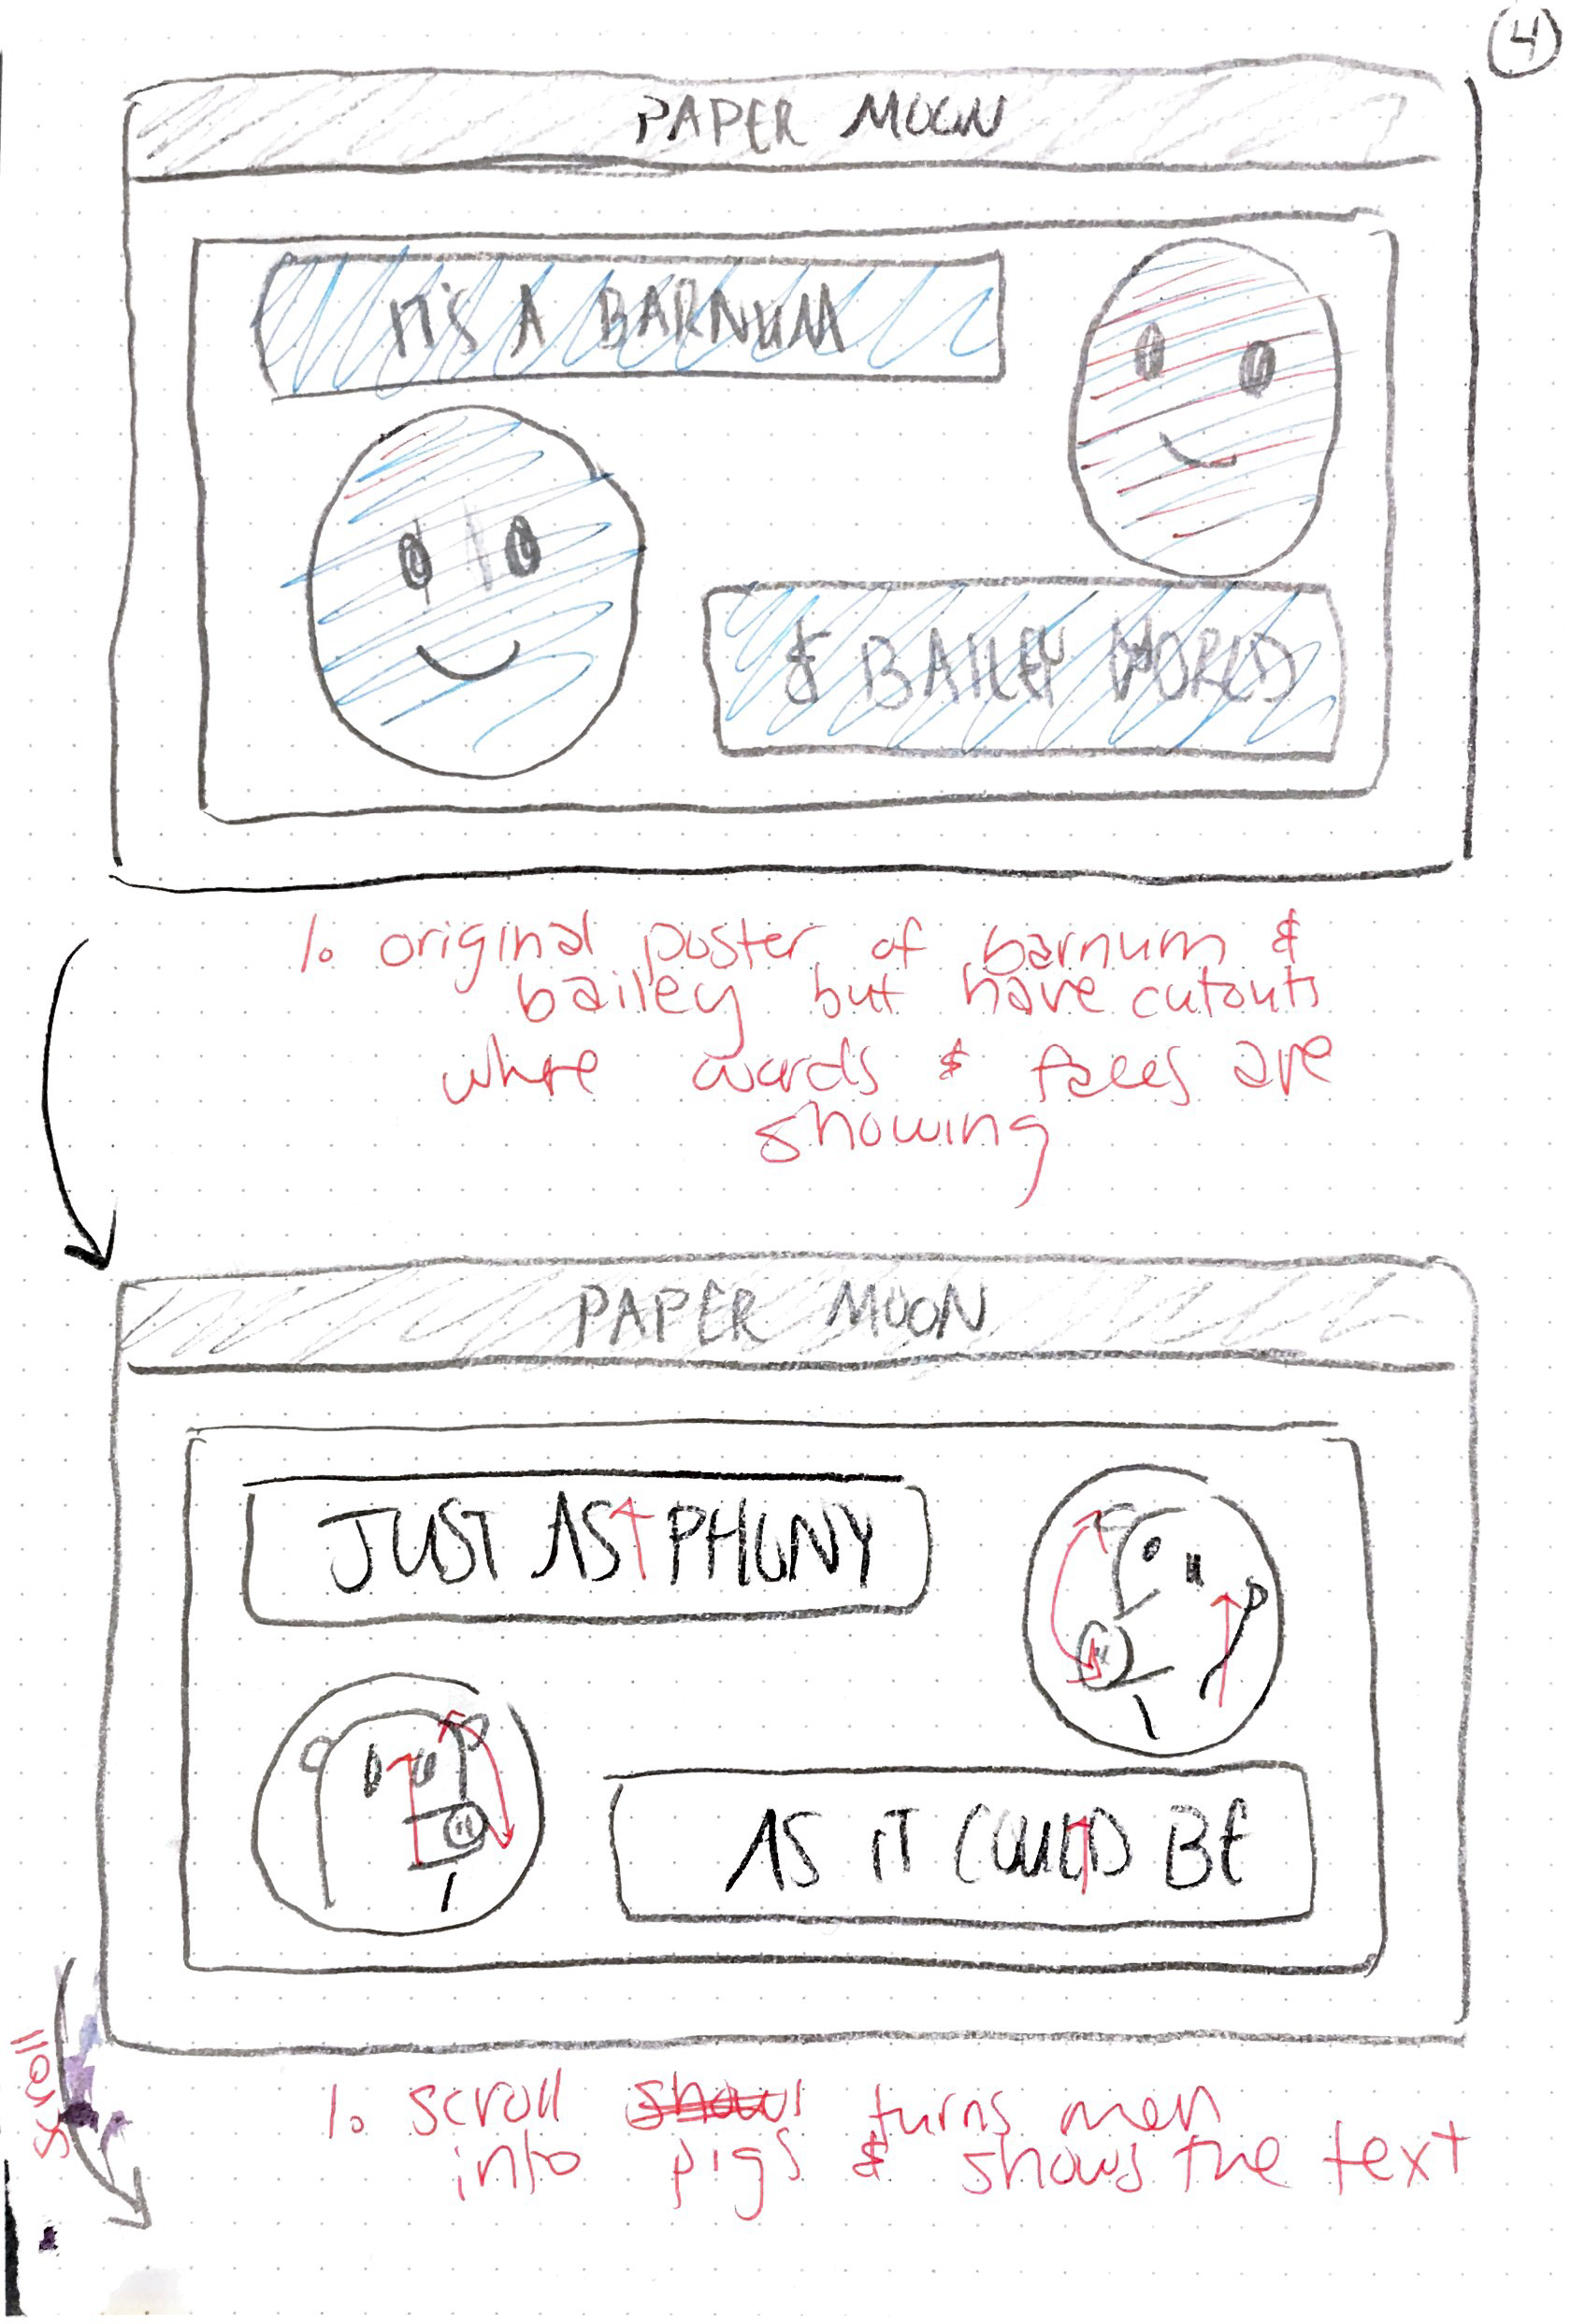 4
PAPER MOON
IT'S A BARNUM
& BAILEY WORLD
1. original poster of barnum &
bailey but have cutouts
where words & faces are
showing
PAPER MOON
JUST AS PHONY
AS IT COULD BE
scroll
1. scroll shows turns men
into pigs & shows the text